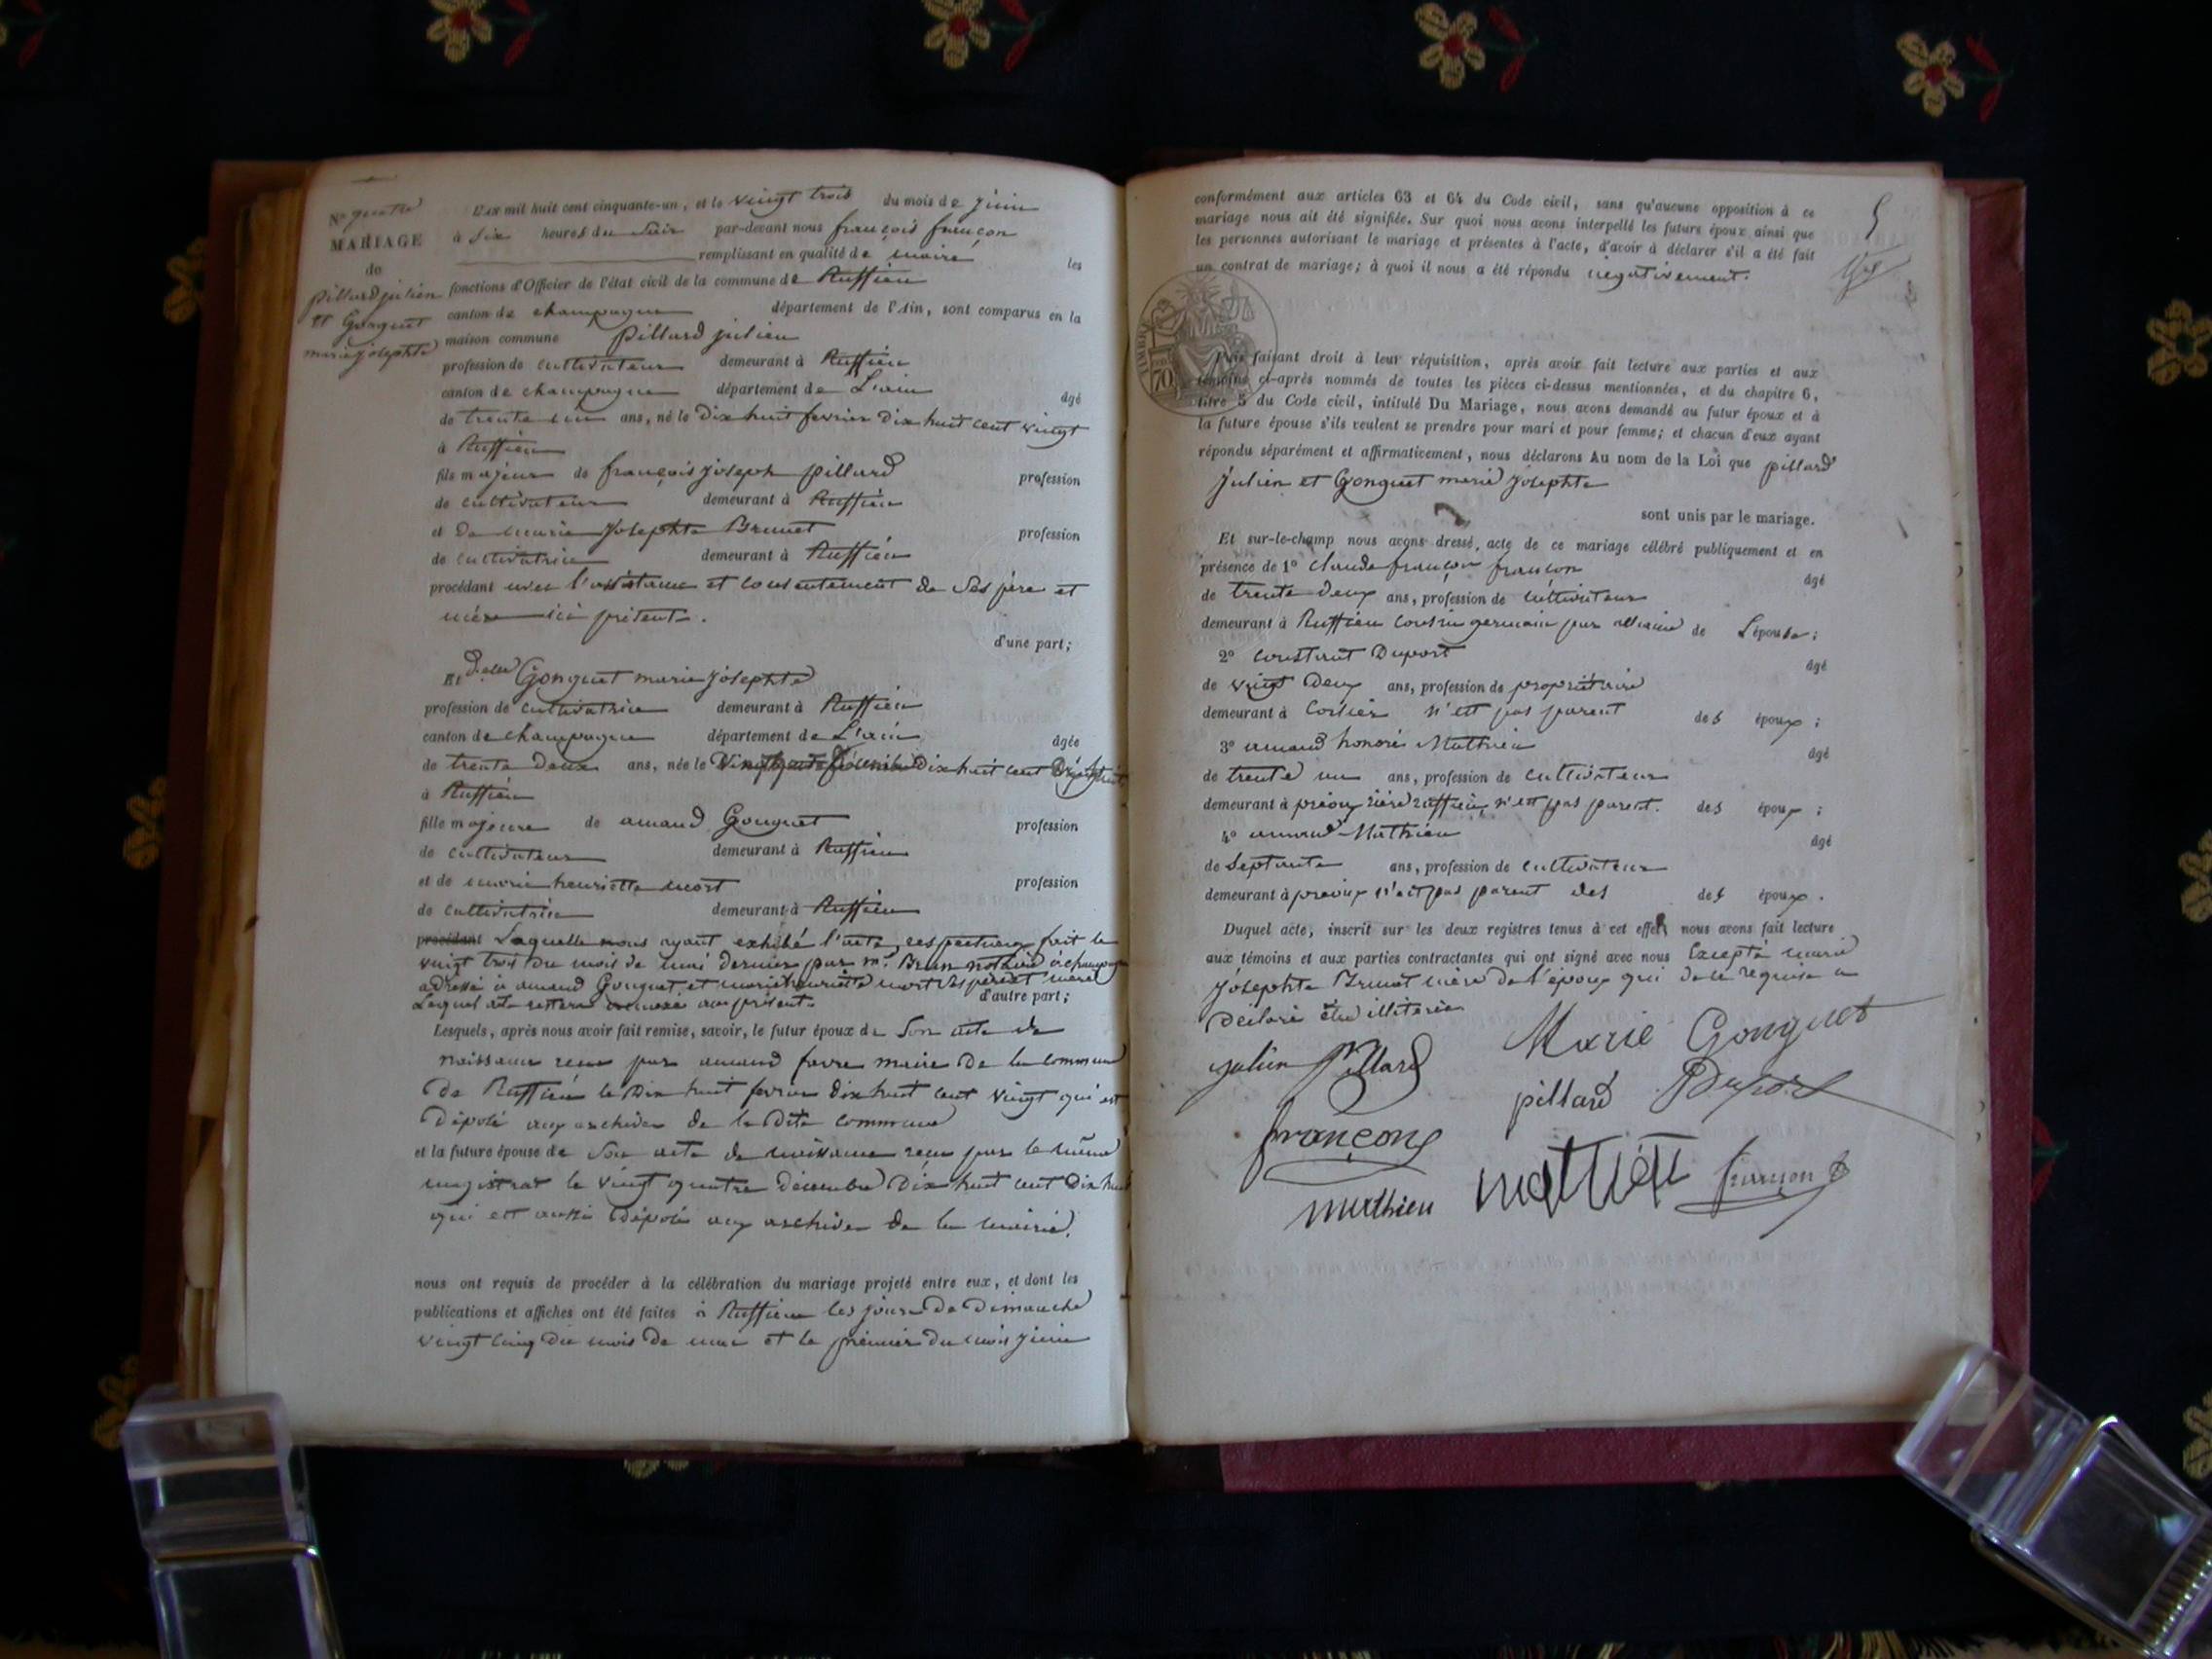 N° quatre
MARIAGE
de
pillard julien
et Gonguet
marie josephte
L'AN mil huit cent cinquante-un, et le vingt trois du mois de juin
à Six heures du Soir par-devant nous françois françon
remplissant en qualité de maire les
fonctions d'Officier de l'état civil de la commune de Ruffieu
canton de champagne département de l'Ain, sont comparus en la
maison commune pillard julien
profession de cultivateur demeurant à Ruffieu
canton de champagne département de L'ain
âgé
de trente un ans, né le Dix huit fevrier Dix huit cent vingt
à Ruffieu
fils majeur de françois joseph pillard profession
de cultivateur demeurant à Ruffieu
et De marie josephte Brunet profession
de cultivatrice demeurant à Ruffieu
procédant avec l'assistance et consentement de Ses père et
mère ici présents.
d'une part;
Et Gonguet marie josephte
profession de cultivatrice demeurant à Ruffieu
canton de champagne département de L'ain
âgée
de trente Deux ans, née le Dix huit cent
à Ruffieu
fille majeure de amand Gonguet profession
de cultivateur demeurant à Ruffieu
et de marie henriette mort profession
de cultivatrice demeurant à Ruffieu
procédant Laquelle nous ayant exhibé l'acte respectueux fait le
vingt trois Du mois de mai dernier par mr Brun nothaire à champagne
adressé à amand Gonguet et marie henriette mort Ses père et mère
Lequel acte restera annexé au présent. d'autre part;
Lesquels, après nous avoir fait remise, savoir, le futur époux de Son acte de
naissance recu par amand favre maire De la commune
De Ruffieu le Dix huit fevrier dix huit cent vingt qui est
Déposé aux archives de la Dite commune
et la future épouse de Son acte de naissance recu par le même
magistrat le vingt quatre décembre Dix huit cent Dix huit
qui est aussi Déposé aux archives de la mairie.
nous ont requis de procéder à la célébration du mariage projeté entre eux, et dont les
publications et affiches ont été faites à Ruffieu les jours De Dimanche
vingt cinq Du mois De mai et le premier Du mois juin
5
conformément aux articles 63 et 64 du Code civil, sans qu'aucune opposition à ce
mariage nous ait été signifiée. Sur quoi nous avons interpellé les futurs époux ainsi que
les personnes autorisant le mariage et présentes à l'acte, d'avoir à déclarer s'il a été fait
un contrat de mariage; à quoi il nous a été répondu négativement.
TIMBRE
70
Puis faisant droit à leur réquisition, après avoir fait lecture aux parties et aux
témoins ci-après nommés de toutes les pièces ci-dessus mentionnées, et du chapitre 6,
titre 5 du Code civil, intitulé Du Mariage, nous avons demandé au futur époux et à
la future épouse s'ils veulent se prendre pour mari et pour femme; et chacun d'eux ayant
répondu séparément et affirmativement, nous déclarons Au nom de la Loi que pillard
Julien et Gonguet marie Josephte
sont unis par le mariage.
Et sur-le-champ nous avons dressé, acte de ce mariage célébré publiquement et en
présence de 1° claude françon
âgé
de trente Deux ans, profession de cultivateur
demeurant à Ruffieu cousin germain par alliance de L'épouse;
2° constant Duport
âgé
de vingt Deux ans, profession de propriétaire
demeurant à n'est pas parent des époux;
3° amand honoré Mathieu
âgé
de trente un ans, profession de cultivateur
demeurant à n'est pas parent. des époux;
4° amand Mathieu
âgé
de Septante ans, profession de cultivateur
demeurant à n'est pas parent des des époux.
Duquel acte, inscrit sur les deux registres tenus à cet effet, nous avons fait lecture
aux témoins et aux parties contractantes qui ont signé avec nous Excepté marie
josephte Brunet mère de l'époux qui de ce requise a
Déclaré être illitérée
julien pillard
Marie Gonguet
pillard Duport
françon
mathieu mathieu françon